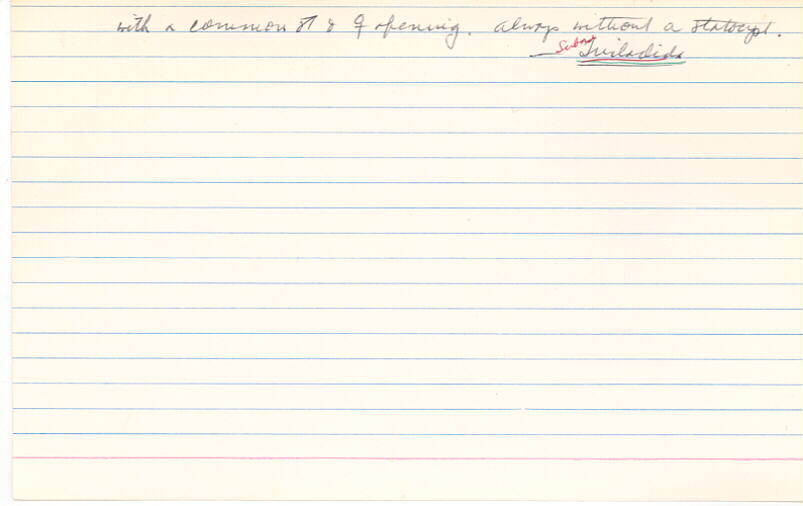 with a common ♂ & ♀ opening. Always without a statocyst.
— Subord Tricladida